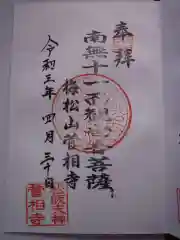 奉拝
南無十一面観世音菩薩
梅松山菅相寺
令和三年四月三十日
菅相寺